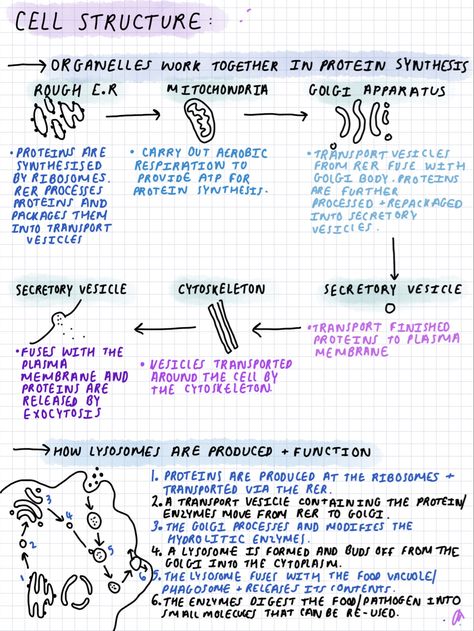 CELL STRUCTURE:
→ ORGANELLES WORK TOGETHER IN PROTEIN SYNTHESIS
ROUGH E.R
• PROTEINS ARE
SYNTHESISED
BY RIBOSOMES.
RER PROCESSES
PROTEINS AND
PACKAGES THEM
INTO TRANSPORT
VESICLES
MITOCHONDRIA
• CARRY OUT AEROBIC
RESPIRATION TO
PROVIDE ATP FOR
PROTEIN SYNTHESIS.
GOLGI APPARATUS
• TRANSPORT VESICLES
FROM RER FUSE WITH
GOLGI BODY. PROTEINS
ARE FURTHER
PROCESSED + REPACKAGED
INTO SECRETORY
VESICLES.
SECRETORY VESICLE
• TRANSPORT FINISHED
PROTEINS TO PLASMA
MEMBRANE
CYTOSKELETON
• VESICLES TRANSPORTED
AROUND THE CELL BY
THE CYTOSKELETON.
SECRETORY VESICLE
• FUSES WITH THE
PLASMA
MEMBRANE AND
PROTEINS ARE
RELEASED BY
EXOCYTOSIS
→ HOW LYSOSOMES ARE PRODUCED + FUNCTION
1
2
3
4
5
6
1. PROTEINS ARE PRODUCED AT THE RIBOSOMES +
TRANSPORTED VIA THE RER.
2. A TRANSPORT VESICLE CONTAINING THE PROTEIN/
ENZYMES MOVE FROM RER TO GOLGI.
3. THE GOLGI PROCESSES AND MODIFIES THE
HYDROLITIC ENZYMES.
4. A LYSOSOME IS FORMED AND BUDS OFF FROM THE
GOLGI INTO THE CYTOPLASM.
5. THE LYSOSOME FUSES WITH THE FOOD VACUOLE/
PHAGOSOME + RELEASES ITS CONTENTS.
6. THE ENZYMES DIGEST THE FOOD/PATHOGEN INTO
SMALL MOLECULES THAT CAN BE RE-USED.